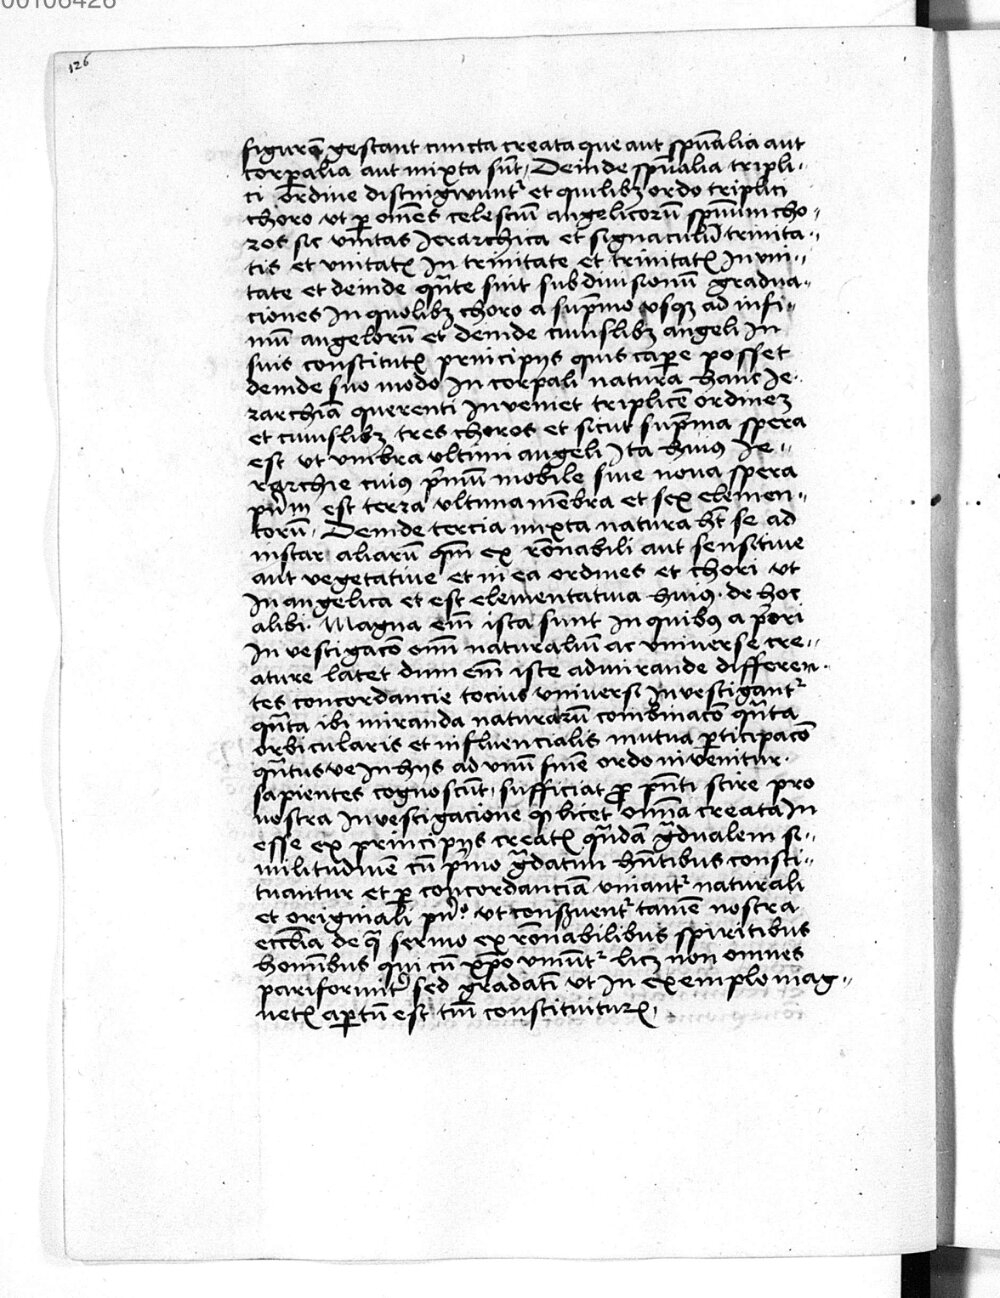 00106426
126
figurē gestant cuncta creata que aut spūalia aut
corꝑalia aut mixta sūt Deinde spūalia tripli-
ci ordine distingwunt᷑ et quilibꝫ ordo triplici
choro ut ꝑ om̄es celesciū angelicorū spirituum cho-
ros sic vnitas Jerarchica et signaculū trinita-
tis et vnitatꝭ In trinitate et trinitatꝭ In uni-
tate et deinde qūte sint subdiuisionū gradua-
ciones In quolibꝫ choro a sup̄mo vsqꝫ ad infi-
mū angelorū et deinde cuiuslibꝫ angeli In
suis constitutꝭ principijs quis caꝑe posset
deinde suo modo In corꝑali natura hanc Je-
rarchiā querenti Inveniet triplicē ordinem
et cuiuslibꝫ tres choros et sicut sup̄ma spera
est ut vmbra vltimi angeli Ita huiꝰ Je-
rarchie cuiꝰ p̄mū mobile siue nona spera
est terra vltima mēbra et sex elemen-
torū Deinde tercia mixta natura hꝫ se ad
instar aliarū qm̄ ex rōnabili aut sensitiue
aut vegetatiue et in ea ordines et chori ut
In angelica et est elementatiua huiꝰ de hoc
alibi Magna em̄ ista sunt In quibꝰ a p̄ori
In vestigacō om̄i naturaliū ac vniuerse cre-
ature latet dum em̄ iste admirande differen-
tes concordancie tocius vniuersi Investigant᷑
qūta ibi miranda naturarū combinacō qūta
orbicularis et influencialis mutua ꝑticipacō
qūtusve In hijs ad vnū finē ordo invenitur
sapientes cognoscūt sufficiat ꝓ pn̄ti scire pro
nostra Investigacione ꝙ licet om̄ia creata In
esse ex principijs creatꝭ qūdā gͣdualem si-
militudinē cū p̄mo gͣdatim hn̄tibus consti-
tuantur et ꝑ concordanciā vniant᷑ naturali
et originali ut conseruent᷑ tamē nostra
ecclīa de qͣ sermo ex rōnabilibus spiritibus
hom̄ibus qui cū xp̄o vniūt᷑ licꝫ non omnes
pariformit᷑ sed gradatī ut In exemplo mag-
netꝭ aꝑtū est tm̄ constituitur